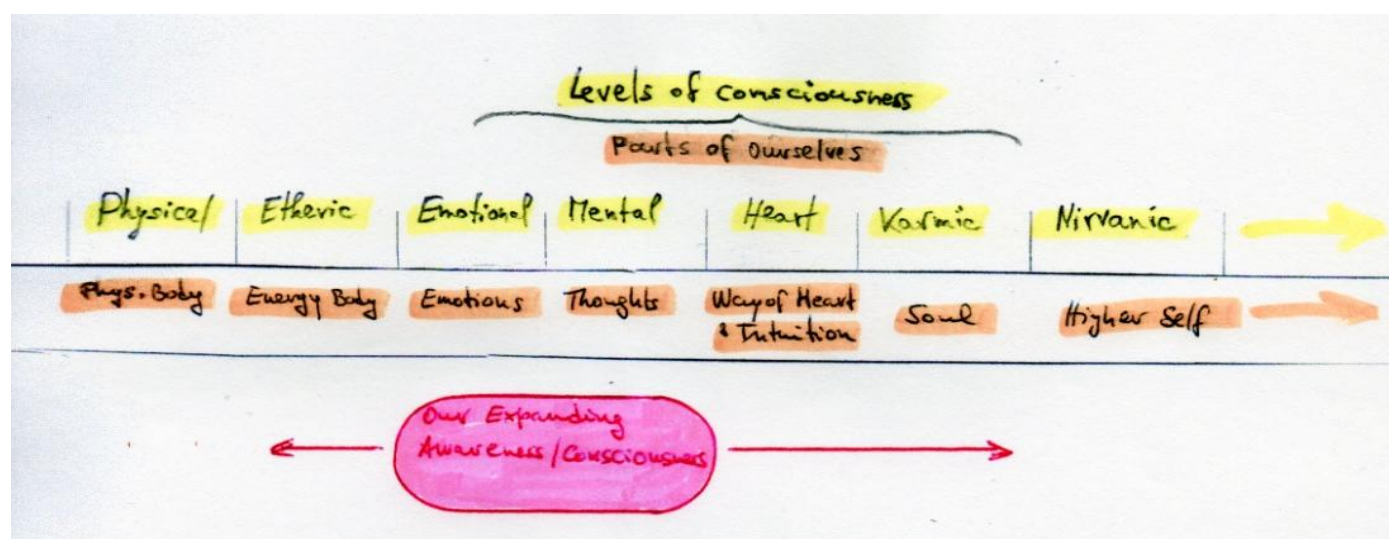 Levels of consciousness
Parts of Ourselves
Physical Etheric Emotional Mental Heart Karmic Nirvanic
Phys. Body Energy Body Emotions Thoughts Way of Heart Soul Higher Self
& Intuition
Our Expanding
Awareness/Consciousness